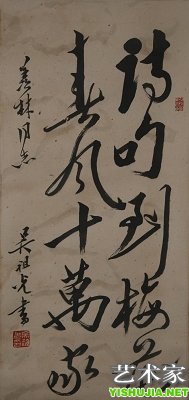 詩句到梅花
春風十萬家
春林同志
吴祖光書
艺术家
YISHUJIA.NET